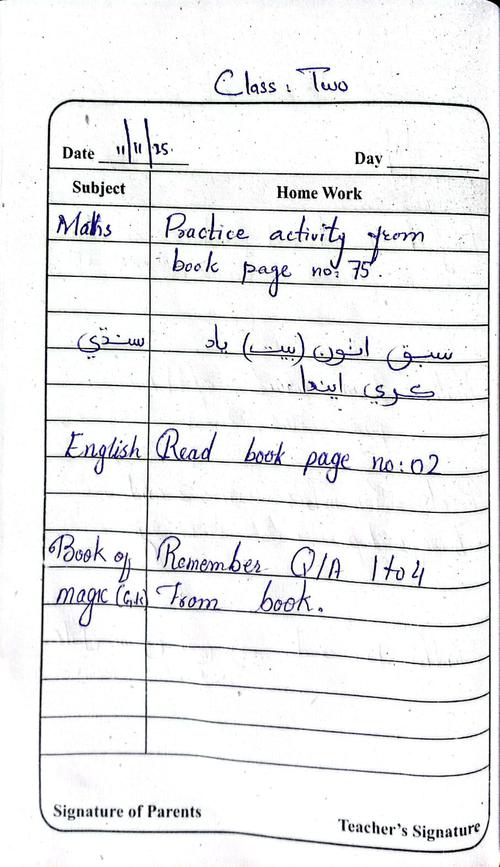 Class: Two
Date 11/11/25.
Day
Subject
Home Work
Maths
Practice activity from
book page no: 75.
سنڌي
سبق اٺون (بيت) ياد
ڪري ايندا.
English
Read book page no: 02
Book of
magic (G.k)
Remember Q/A 1 to 4
From book.
Signature of Parents
Teacher's Signature